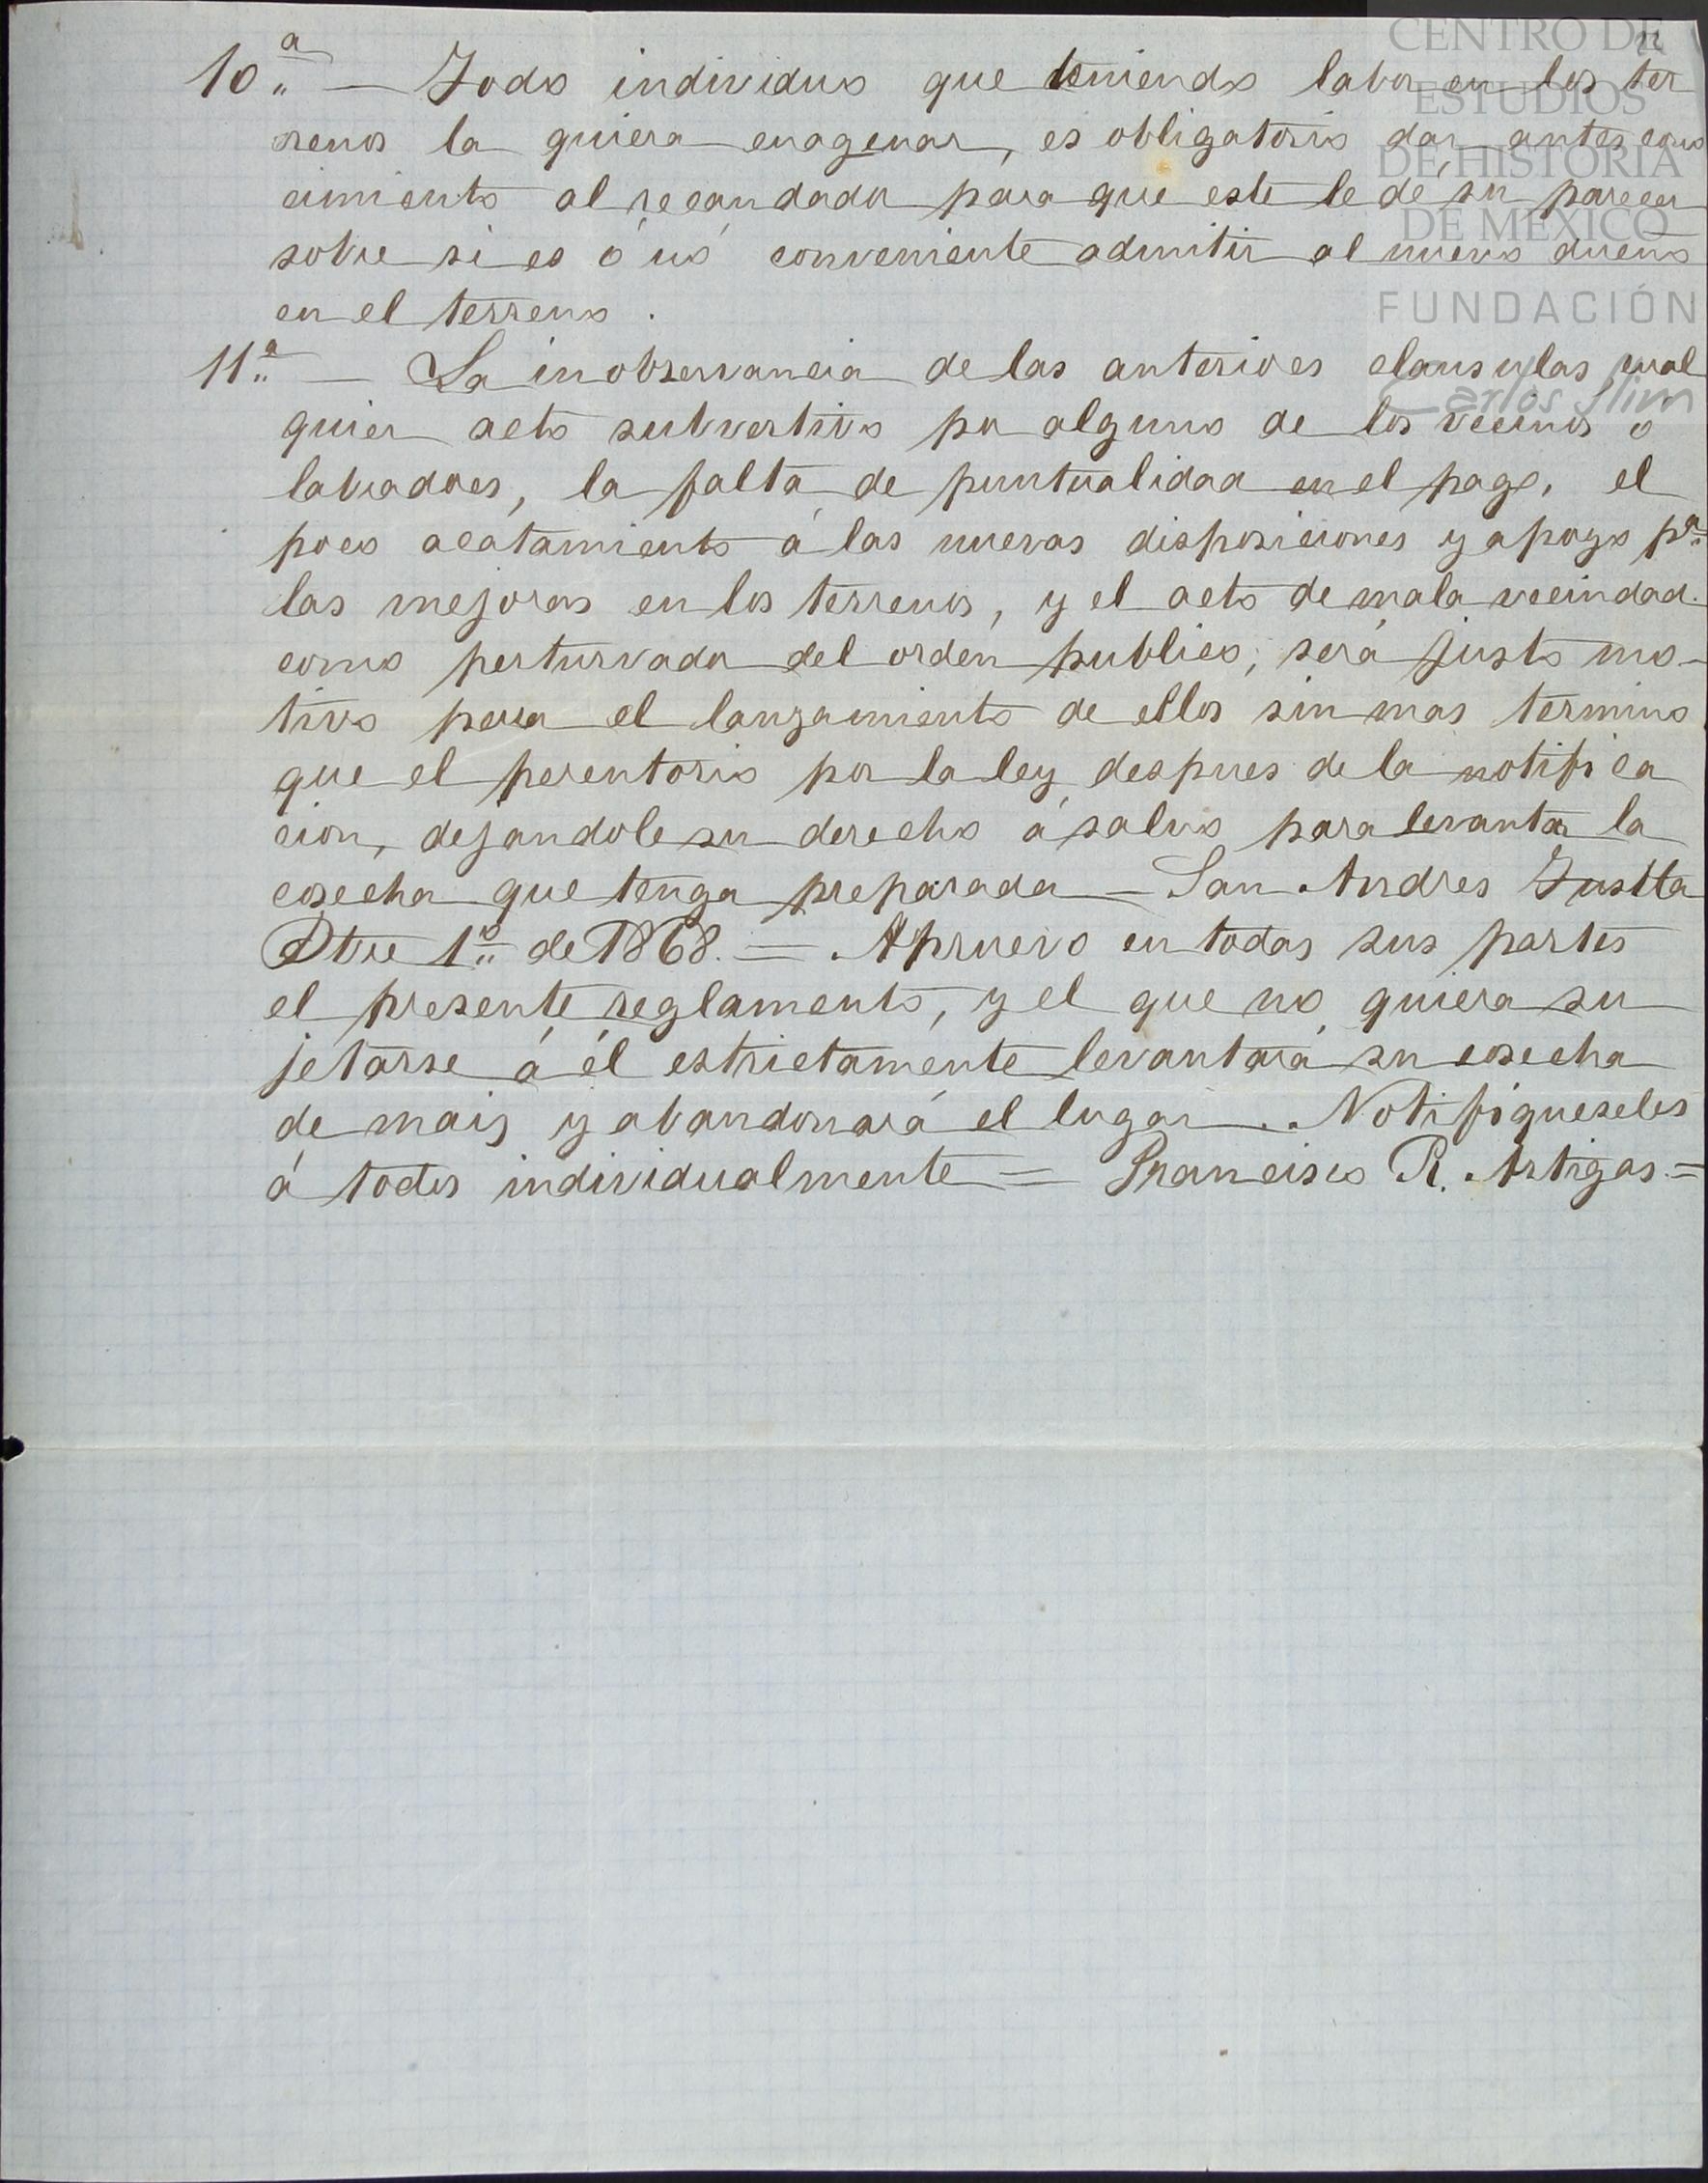 10.ª — Todo individuo que teniendo labor en los ter
renos la quiera enagenar, es obligatorio dar antes cono
cimiento al recaudador para que este le dé su parecer
sobre si es ó nó conveniente admitir al nuevo dueño
en el terreno.
11.ª — La inobservancia de las anteriores clausulas cual
quier acto subvertivo por alguno de los vecinos o
labradores, la falta de puntualidad en el pago, el
poco acatamiento á las nuevas disposiciones y apoyo pª.
las mejoras en los terrenos, y el acto de mala vecindad.
como perturvador del orden publico, será justo mo-
tivo para el lanzamiento de ellos sin mas termino
que el perentorio por la ley despues de la notifica
cion, dejandole su derecho á salvo para levantar la
cosecha que tenga preparada — San Andres Tustla
Otre 1º de 1868. = Apruevo en todas sus partes
el presente reglamento, y el que no quiera su
jetarse á él estrictamente levantará su cosecha
de mais y abandonará el lugar. Notifiqueseles
á todos individualmente = Francisco R. Artigas. =
CENTRO DE
ESTUDIOS
DE HISTORIA
DE MÉXICO
FUNDACIÓN
Carlos Slim